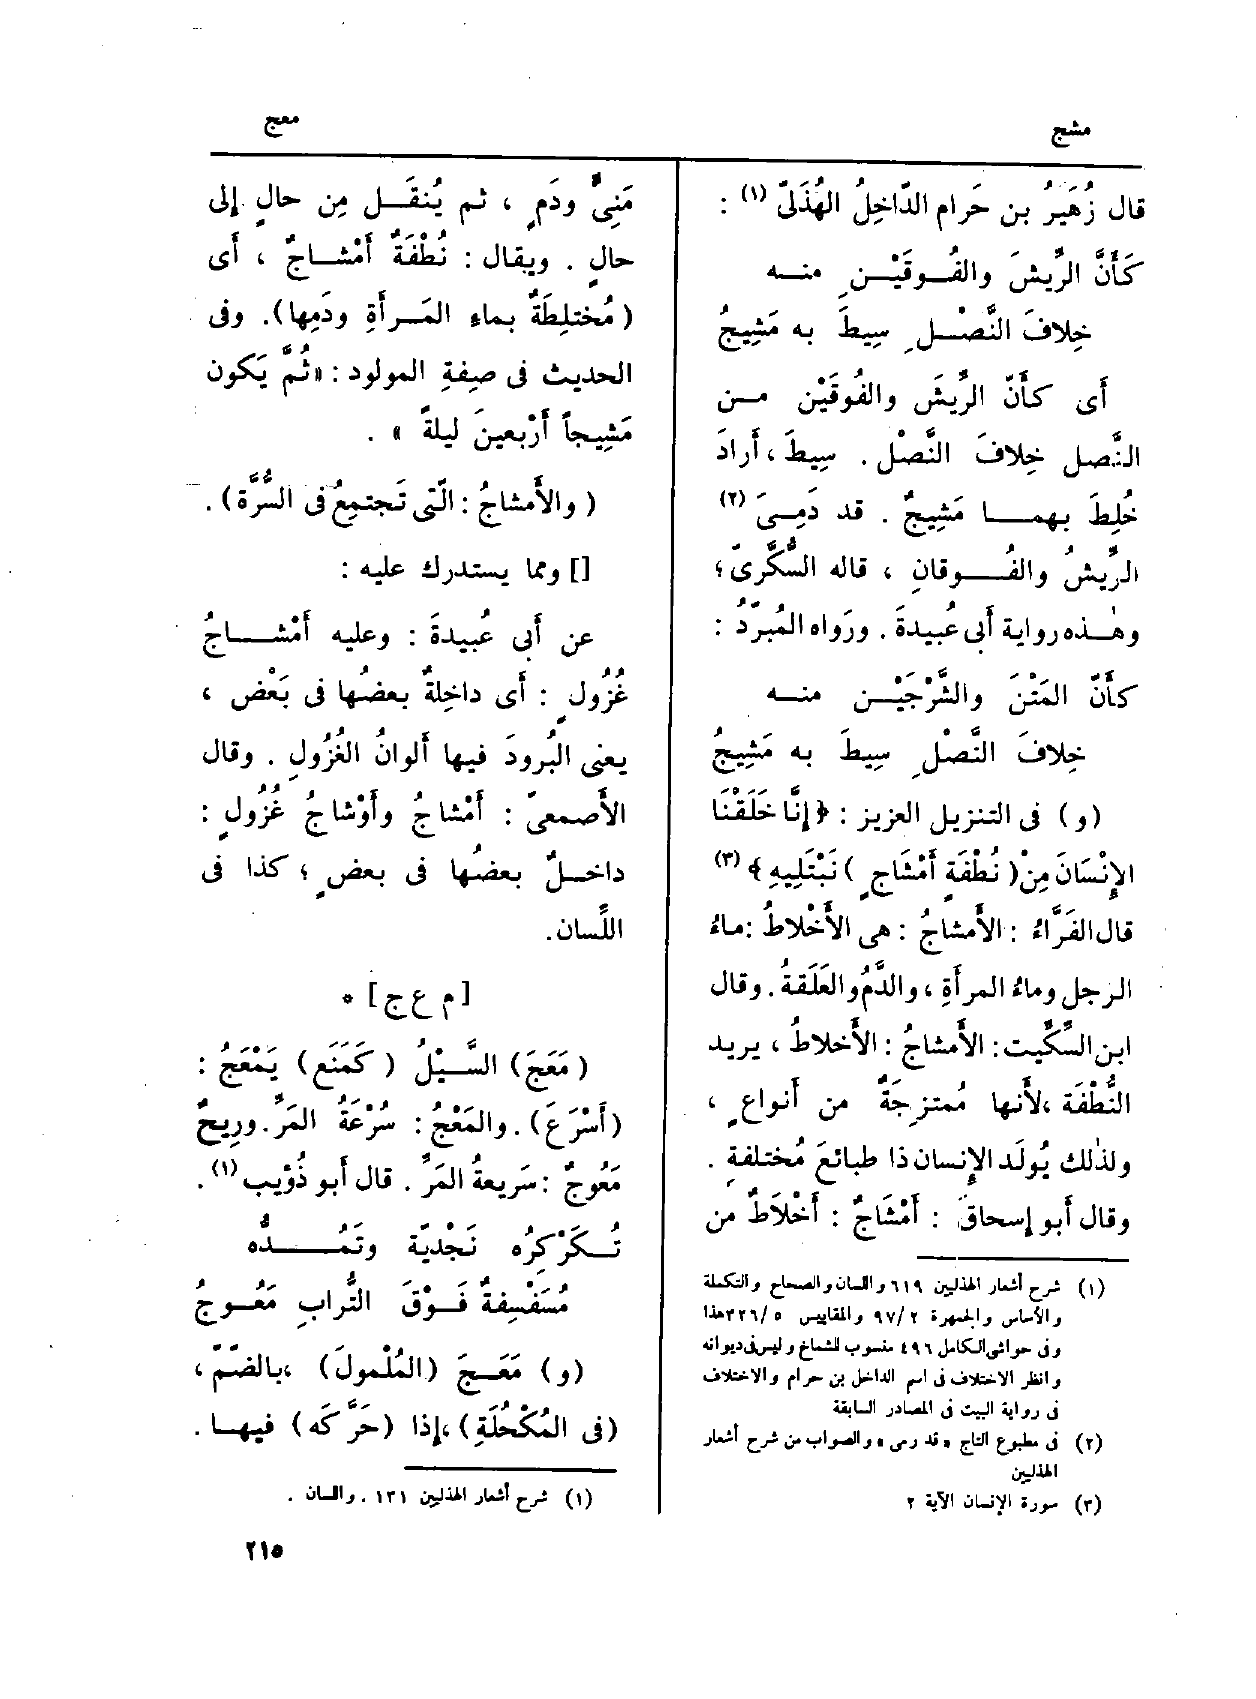 مشج
معج
قال زُهَيرُ بن حَرام الدّاخِلُ الهُذَلىّ (١) :
كَأَنَّ الرِّيشَ والفُوقَيْنِ منه
خِلافَ النَّصْلِ سِيطَ به مَشِيجُ
أى كأَنّ الرِّيشَ والفُوقَيْن من
النَّصل خِلافَ النَّصْل . سِيطَ ، أَرادَ
خُلِطَ بهما مَشِيجٌ . قد دَمِىَ (٢)
الرِّيشُ والفُوقانِ ، قاله السُّكَّرىّ ؛
وهٰذه رواية أَبى عُبيدةَ . ورَواه المُبَرِّدُ :
كأَنّ المَتْنَ والشَّرْجَيْنِ منه
خِلافَ النَّصْلِ سِيطَ به مَشِيجُ
(و) فى التنزيل العزيز : ﴿ إِنَّا خَلَقْنَا
الإِنْسَانَ مِنْ ( نُطْفَةٍ أَمْشَاجٍ ) نَبْتَلِيهِ ﴾ (٣)
قال الفَرَّاءُ : الأَمشاجُ : هى الأَخْلاطُ : ماءُ
الرجل وماءُ المرأَةِ ، والدَّمُ والعَلَقةُ . وقال
ابن السِّكِّيت : الأَمشاجُ : الأَخلاطُ ، يريد
النُّطْفَة ، لأَنها مُمتزِجَةٌ من أَنواعٍ ،
ولذٰلك يُولَد الإِنسان ذا طبائعَ مُختلفةٍ .
وقال أَبو إِسحاقَ : أَمْشَاجٌ : أَخْلَاطٌ من
(١) شرح أشعار الهذليين ٦١٩ واللسان والصحاح والتكملة
والأساس والجمهرة ٩٧/٢ والمقاييس ٣٢٦/٥ هذا
وفى حواشى الكامل ٤٩٦ منسوب للشماخ وليس فى ديوانه
وانظر الاختلاف فى اسم الداخل بن حرام والاختلاف
فى رواية البيت فى المصادر السابقة
(٢) فى مطبوع التاج « قد رمى » والصواب من شرح أشعار
الهذليين
(٣) سورة الإنسان الآية ٢
مَنِىٍّ ودَمٍ ، ثم يُنقَل مِن حالٍ إلى
حالٍ . ويقال : نُطْفَةٌ أَمْشاجٌ ، أَى
( مُختلِطَةٌ بماءِ المَرأَةِ ودَمِها ) . وفى
الحديث فى صِفةِ المولود : « ثُمَّ يَكون
مَشِيجاً أَرْبعينَ ليلةً » .
( والأَمشاجُ : الَّتى تَجتمِعُ فى السُّرَّة ) .
[] ومما يستدرك عليه :
عن أَبى عُبيدةَ : وعليه أَمْشاجُ
غُزُولٍ : أَى داخِلةٌ بعضُها فى بَعْض ،
يعنى البُرودَ فيها أَلوانُ الغُزُولِ . وقال
الأَصمعىّ : أَمْشاجُ وأَوْشاجُ غُزُولٍ :
داخلٌ بعضُها فى بعضٍ ؛ كذا فى
اللِّسان .
[ م ع ج ] *
( مَعَجَ ) السَّيْلُ ( كَمَنَع ) يَمْعَجُ :
( أَسْرَعَ ) . والمَعْجُ : سُرْعَةُ المَرِّ . ورِيحٌ
مَعُوجٌ : سَرِيعةُ المَرِّ . قال أَبو ذُؤَيب (١) .
تُكَرْكِرُه نَجْدِيّة وتَمُدُّه
مُسَفْسِفةٌ فَوْقَ التُّرابِ مَعُوجُ
(و) مَعَج (المُلْمولَ) ، بالضّمّ ،
( فى المُكْحُلَةِ ) ، إِذا ( حَرَّكَه ) فيها .
(١) شرح أشعار الهذليين ١٣١ . واللسان .
٢١٥